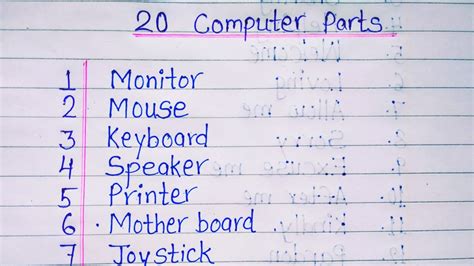 20 Computer Parts
1 Monitor
2 Mouse
3 Keyboard
4 Speaker
5 Printer
6 . Mother board
7 Joystick